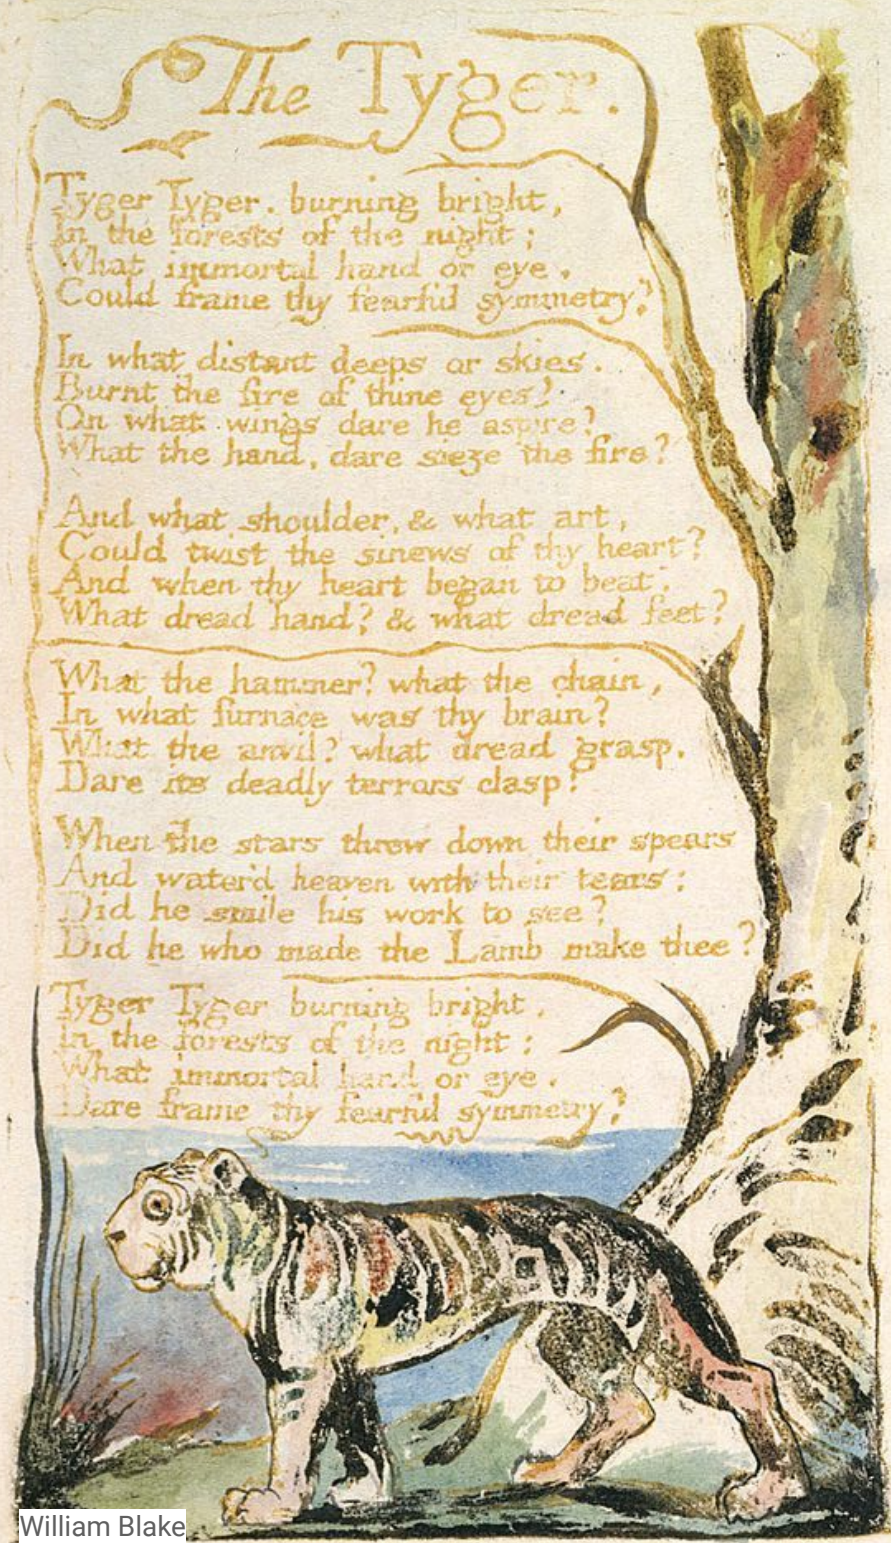 The Tyger.
Tyger Tyger. burning bright,
In the forests of the night;
What immortal hand or eye.
Could frame thy fearful symmetry?
In what distant deeps or skies.
Burnt the fire of thine eyes?
On what wings dare he aspire?
What the hand, dare sieze the fire?
And what shoulder, & what art,
Could twist the sinews of thy heart?
And when thy heart began to beat,
What dread hand? & what dread feet?
What the hammer? what the chain,
In what furnace was thy brain?
What the anvil? what dread grasp.
Dare its deadly terrors clasp!
When the stars threw down their spears
And water'd heaven with their tears:
Did he smile his work to see?
Did he who made the Lamb make thee?
Tyger Tyger burning bright,
In the forests of the night:
What immortal hand or eye.
Dare frame thy fearful symmetry?
William Blake